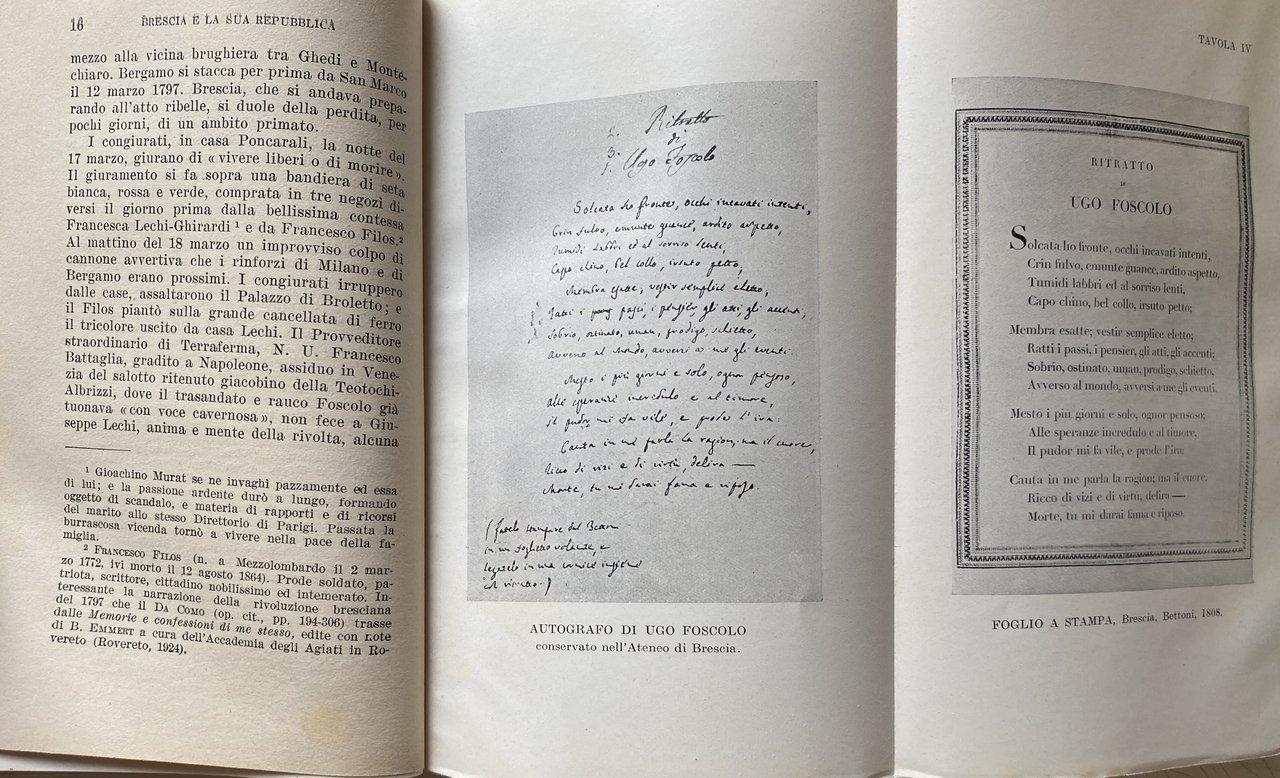 16
BRESCIA E LA SUA REPUBBLICA
mezzo alla vicina brughiera tra Ghedi e Monte-
chiaro. Bergamo si stacca per prima da San Marco
il 12 marzo 1797. Brescia, che si andava prepa-
rando all'atto ribelle, si duole della perdita, per
pochi giorni, di un ambito primato.
I congiurati, in casa Poncarali, la notte del
17 marzo, giurano di « vivere liberi o di morire ».
Il giuramento si fa sopra una bandiera di seta
bianca, rossa e verde, comprata in tre negozi di-
versi il giorno prima dalla bellissima contessa
Francesca Lechi-Ghirardi ¹ e da Francesco Filos.²
Al mattino del 18 marzo un improvviso colpo di
cannone avvertiva che i rinforzi di Milano e di
Bergamo erano prossimi. I congiurati irruppero
dalle case, assaltarono il Palazzo di Broletto; e
il Filos piantò sulla grande cancellata di ferro
il tricolore uscito da casa Lechi. Il Provveditore
straordinario di Terraferma, N. U. Francesco
Battaglia, gradito a Napoleone, assiduo in Vene-
zia del salotto ritenuto giacobino della Teotochi-
Albrizzi, dove il trasandato e rauco Foscolo già
tuonava « con voce cavernosa », non fece a Giu-
seppe Lechi, anima e mente della rivolta, alcuna
¹ Gioachino Murat se ne invaghì pazzamente ed essa
di lui; e la passione ardente durò a lungo, formando
oggetto di scandalo, e materia di rapporti e di ricorsi
del marito allo stesso Direttorio di Parigi. Passata la
burrascosa vicenda tornò a vivere nella pace della fa-
miglia.
² FRANCESCO FILOS (n. a Mezzolombardo il 2 mar-
zo 1772, ivi morto il 12 agosto 1864). Prode soldato, pa-
triota, scrittore, cittadino nobilissimo ed intemerato. In-
teressante la narrazione della rivoluzione bresciana
del 1797 che il DA COMO (op. cit., pp. 194-306) trasse
dalle Memorie e confessioni di me stesso, edite con note
di B. EMMERT a cura dell'Accademia degli Agiati in Ro-
vereto (Rovereto, 1924).
2. Ritratto
3. di
1. Ugo Foscolo
Solcata ho fronte, occhi incavati intenti,
Crin fulvo, emunte guance, ardito aspetto,
Tumidi labbri ed al sorriso lenti,
Capo chino, bel collo, irsuto petto;
Membra esatte; vestir semplice eletto;
Ratti i passi, i pensier, gli atti, gli accenti;
Sobrio, ostinato, uman, prodigo, schietto,
Avverso al mondo, avversi a me gli eventi.
Mesto i più giorni e solo, ognor pensoso,
Alle speranze incredulo e al timore,
Il pudor mi fa vile, e prode l'ira:
Cauta in me parla la ragion; ma il cuore,
Ricco di vizi e di virtù, delira —
Morte, tu mi darai fama e riposo.
( fatelo stampare dal Bettoni
in un foglietto volante, e
legatelo in una cornice insieme
col ritratto. )
AUTOGRAFO DI UGO FOSCOLO
conservato nell'Ateneo di Brescia.
TAVOLA IV
RITRATTO
DI
UGO FOSCOLO
Solcata ho fronte, occhi incavati intenti,
Crin fulvo, emunte guance, ardito aspetto,
Tumidi labbri ed al sorriso lenti,
Capo chino, bel collo, irsuto petto;
Membra esatte; vestir semplice eletto;
Ratti i passi, i pensier, gli atti, gli accenti;
Sobrio, ostinato, uman, prodigo, schietto,
Avverso al mondo, avversi a me gli eventi.
Mesto i più giorni e solo, ognor pensoso;
Alle speranze incredulo e al timore,
Il pudor mi fa vile, e prode l'ira:
Cauta in me parla la ragion; ma il cuore,
Ricco di vizi e di virtù, delira —
Morte, tu mi darai fama e riposo.
FOGLIO A STAMPA, Brescia, Bettoni, 1808.